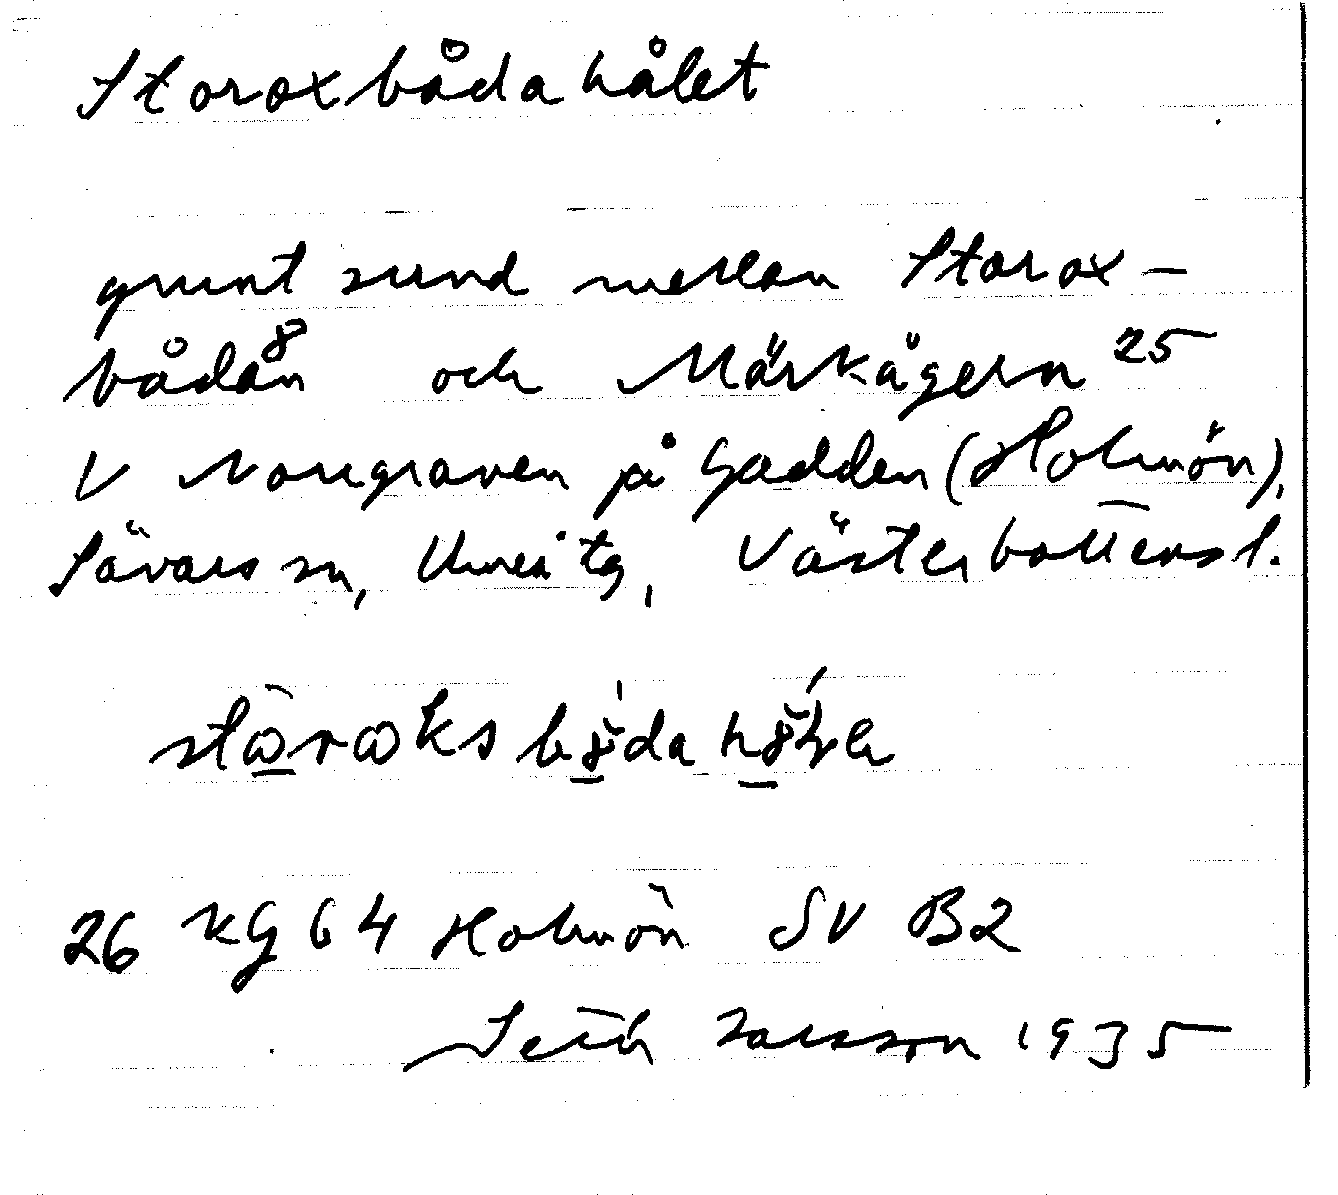 Storoxbådahålet
grunt sund mellan Storox-
bådan 8 och Märkågern 25
V Norrgraven på Gadden (Holmön),
Sävars sn, Umeå tg, Västerbottens l.
26 KG 64 Holmön SV B2
Seth Larsson 1935